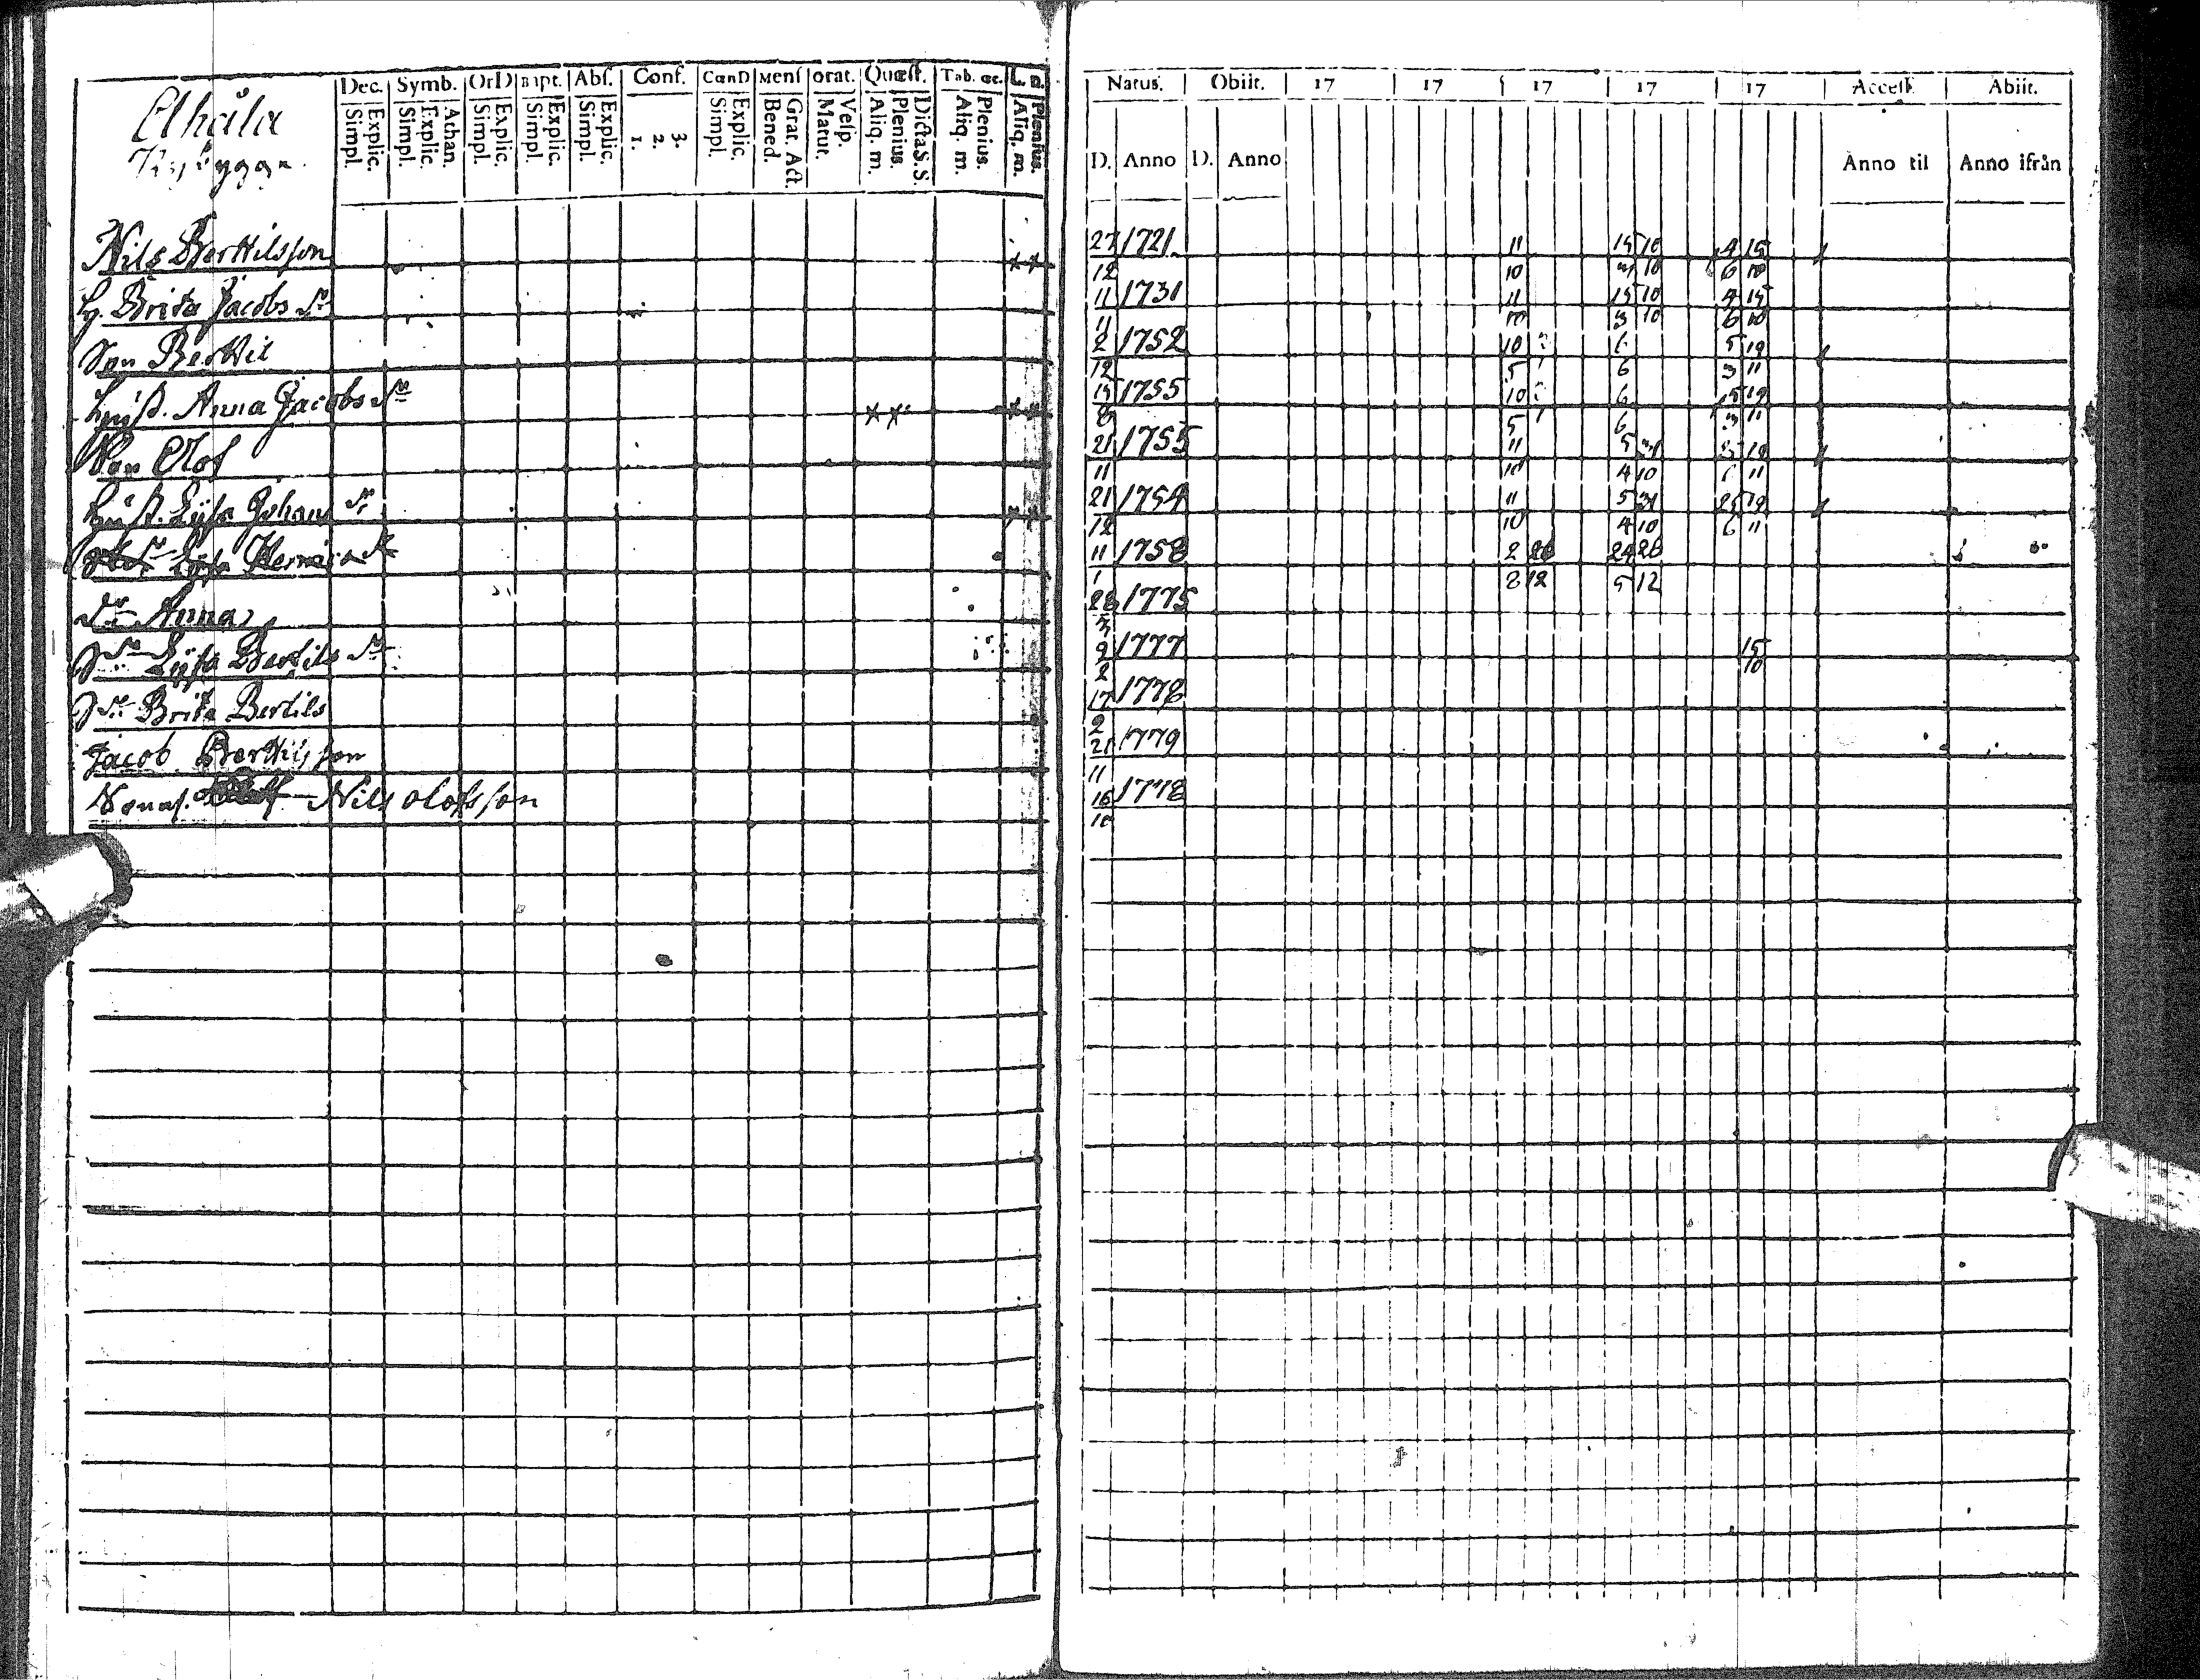 Dec. Symb. OrD Bapt. Abs. Conf. CœnD Mens orat. Quæst. Tab. œc.
Simpl. Explic. Simpl. Explic. Athan. Simpl. Explic. Simpl. Explic. Simpl. Explic. 1. 2. 3. Simpl. Explic. Bened. Grat. Act. Matut. Vesp. Aliq. m. Plenius. Dicta S. S. Aliq. m. Plenius. Aliq. m. Plenius.
Natus. Obiit. 17 17 17 17 17 Access. Abiit.
D. Anno D. Anno Anno til Anno ifrån
Nils Berttilsson 27/12 1721 11/10 15 10/10 4/6 15/10
H. Brita Jacobs dr 11/11 1731 11/10 15/3 10/10 4/6 15/10
Son Berttil 2/12 1752 10/5 6/6 5/3 19/11
Hust. Anna Jacobs dr 15/8 1755 10/5 6/6 5/3 19/11
Son Olof 21/11 1755 11/10 5/4 31/10 19/11
Hust. Lijsa Johans dr 21/12 1754 11/10 5/4 31/10 25/6 19/11
Lijsa 11/1 1758 2/8 26/12 24/5 26/12
dr Anna 28 1775
Lijsa Bertils dr 9/2 1777 15/10
Brita Bertils 17/2 1778
Jacob Berttilsson 21/11 1779
Nils Olofsson 16/10 1778